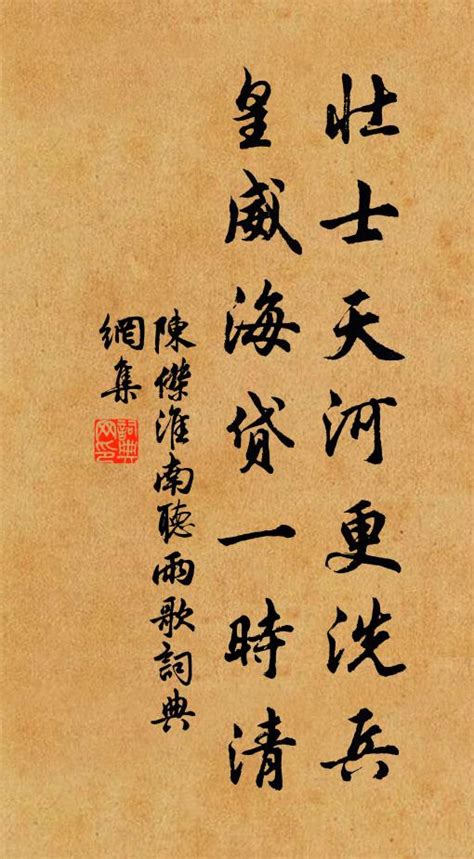 壯士天河更洗兵
皇威海貸一時清
陳傑淮南聽雨歌詞典
網集
詞典
网印